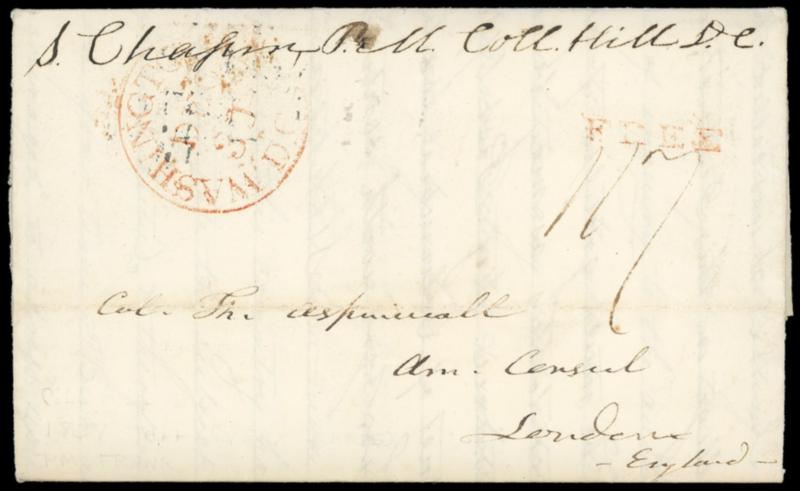 S. Chapin, P.M. Coll. Hill D.C.
WASHINGTON D.C.
FREE
Col. Th. Aspinwall
Am. Consul
London
- England -